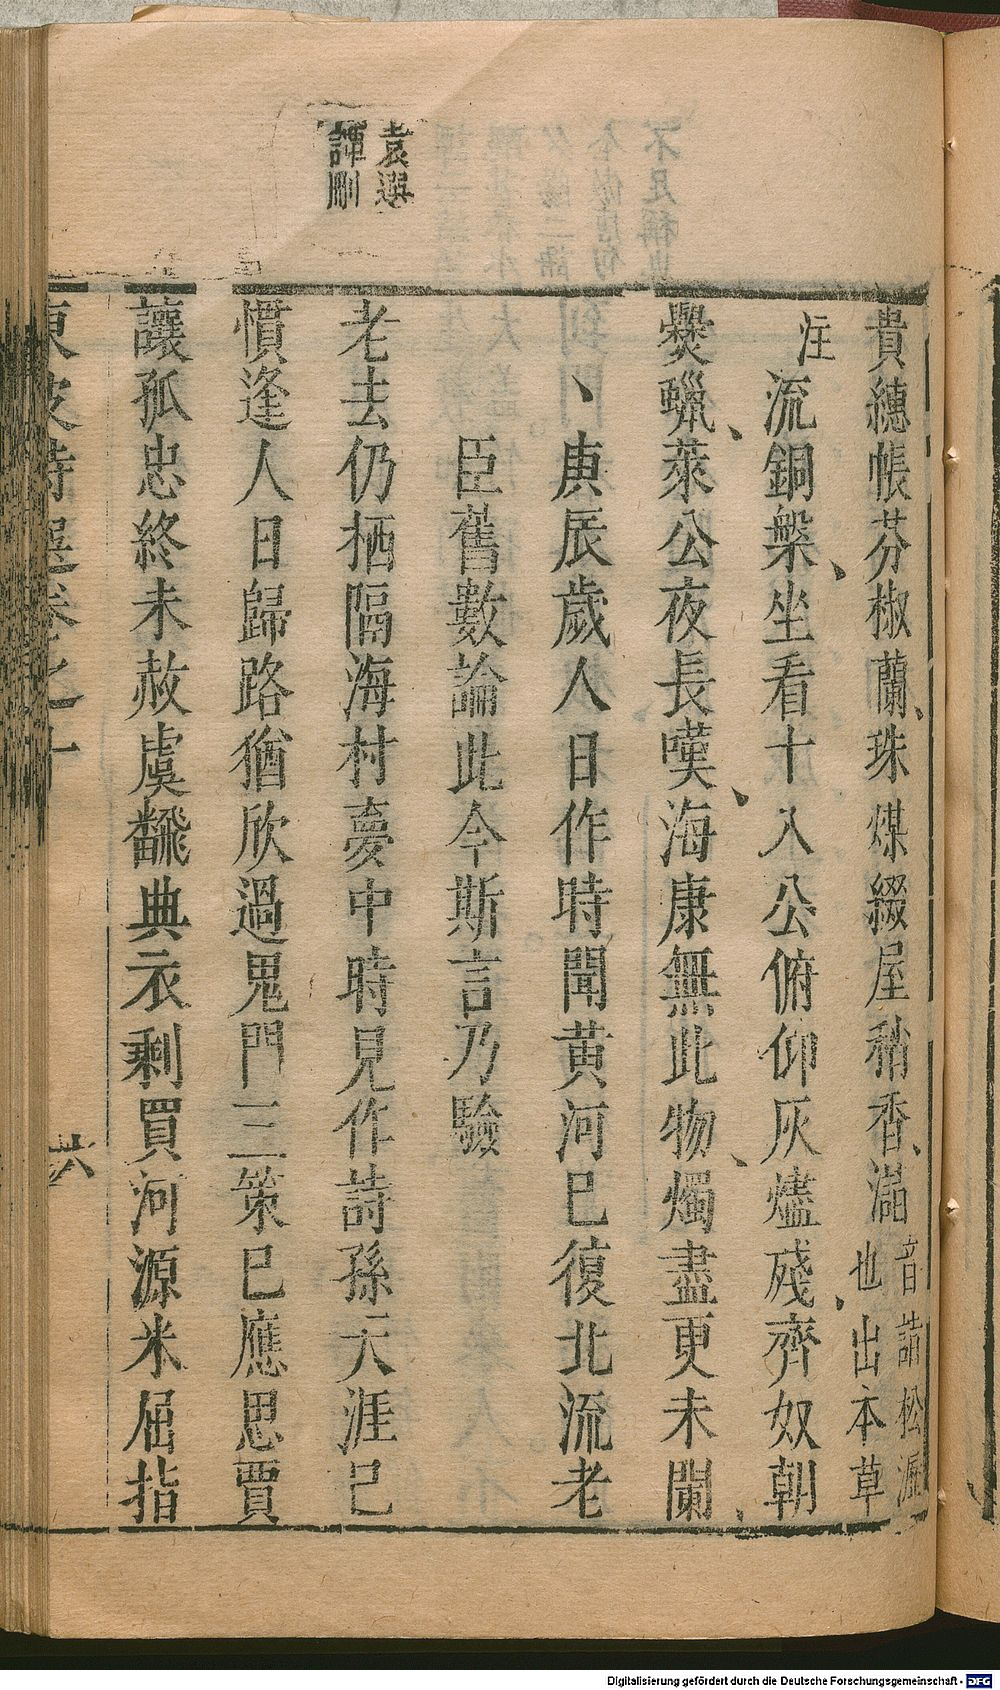 袁選
譚刪
貴繐帳芬椒蘭珠煤綴屋稍香㵩音諸松瀝
也出本草
注
流銅槃坐看十八公俯仰灰燼殘齊奴朝
爨蠟萊公夜長嘆海康無此物燭盡更未闌
庚辰歲人日作時聞黃河已復北流老
臣舊數論此今斯言乃驗
老去仍栖隔海村夢中時見作詩孫天涯已
慣逢人日歸路猶欣過鬼門三策已應思賈
讓孤忠終未赦虞翻典衣剩買河源米屈指
東坡詩選卷之十
六
Digitalisierung gefördert durch die Deutsche Forschungsgemeinschaft - DFG